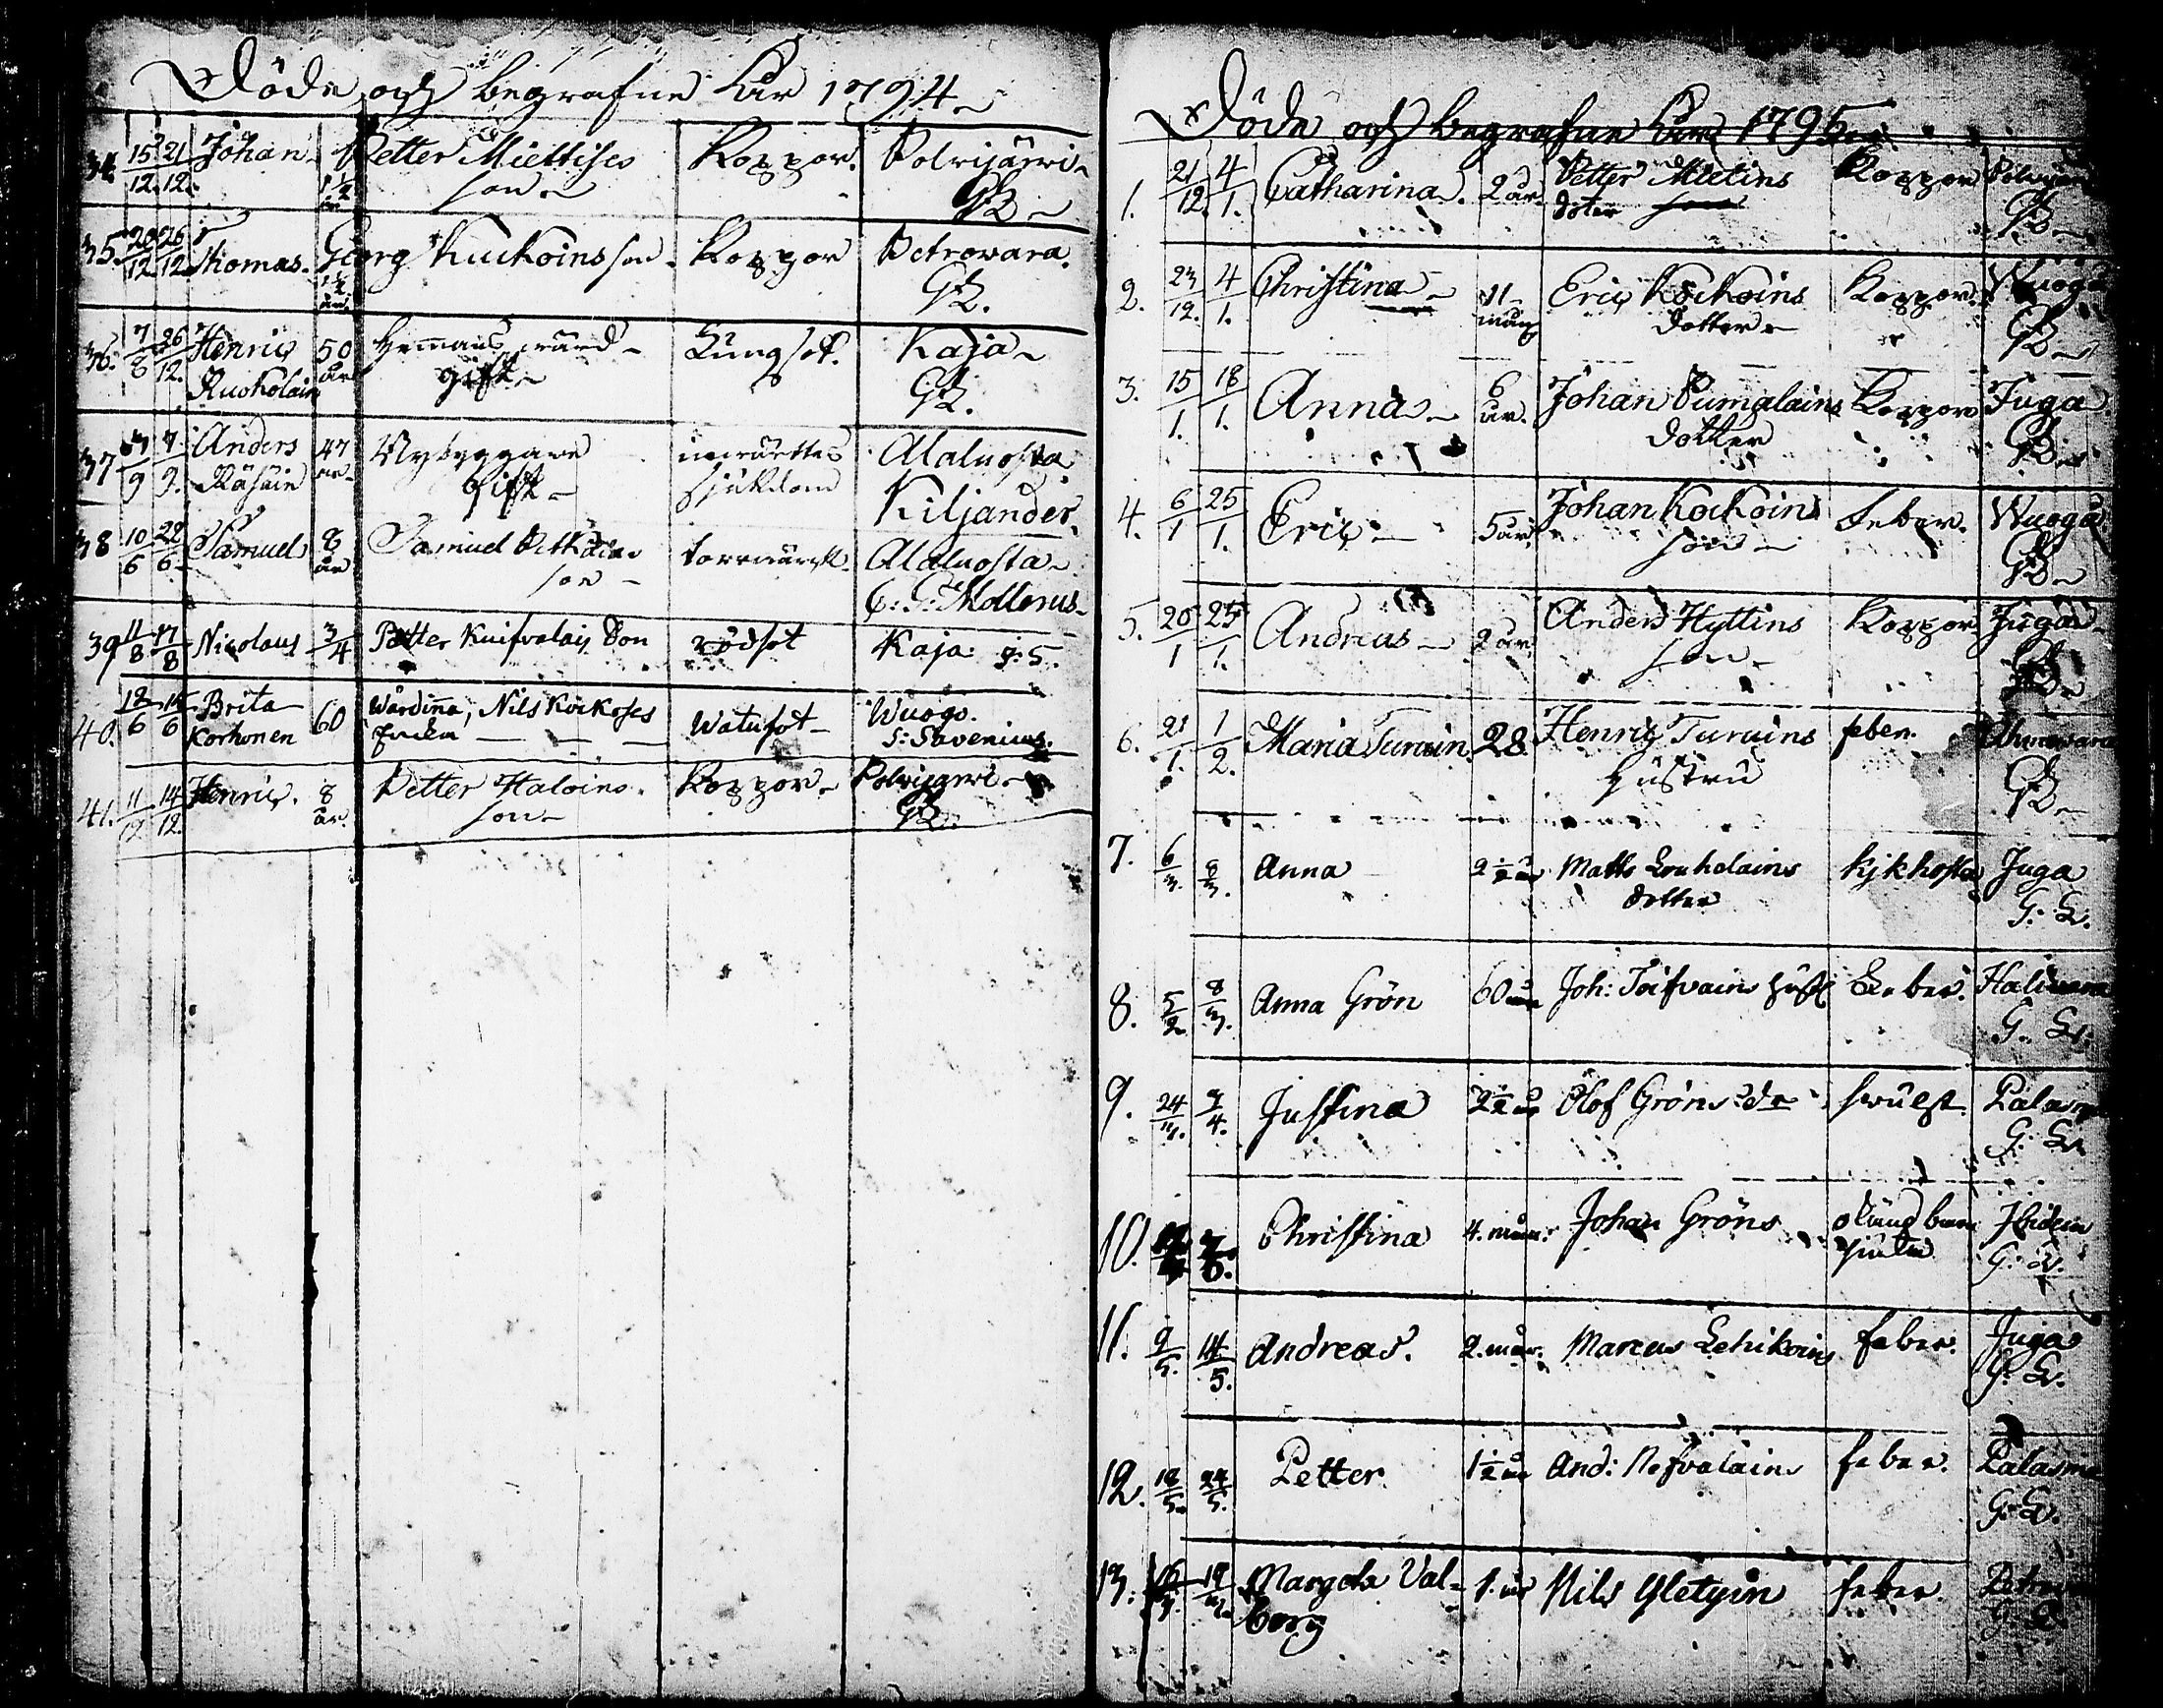 Döde och begrafne Åhr 1794
34. 15/12. 21/12. Johan 1 1/2 år Petter Miettises Koppor. Polvijärvi
son GB
35. 20/12 26/12 Thomas. 1 1/2 år. Georg Kuckoins son Koppor Petrovara.
GB.
36. 7/6 26/12. Henric 50 Hemans wärd Lungsot. Kaja
Ruoholain år gift GB.
37 3/9 7/9. Anders 47 Nybyggare inwärtes Alaluosta
Räsäin år gift sjukdom Kiljander.
38 10/6 22/6 Samuel 8 Samuel torrwärk Alaluosta
år son C: G: Mollerus
39 11/8 17/8 Nicolaus 3/4 Petter Kuifvalais Son rödsot Kaja: g: S.
40. 12/6 15/6 Brita 60 Wärdina, Nils Kockoses Watusot Wuogo.
Korhonen Encka S: Savenius.
41. 11/12 14/12. Henric. 8 Petter Haloins Koppor Polvijarvi
år. son GB.
Döde och begrafne Åhr 1795
1. 21/12. 4/1. Catharina. 2 år Petter Mietins Koppor
doter son GB
2. 23/12. 4/1. Christina 11 Eric Kockoins Koppor. Wuogo
mån dotter GB
3. 15/1. 18/1. Anna 6 Johan Pumalains Koppor Juga
år. dotter GB
4. 6/1 25/1. Eric 5 år Johan Kockoins Feber. Wuogo
son GB
5. 20/1 25/1. Andreas 2 år Anders Hyttins Koppor Juga
son GB
6. 21/1. 1/2. Maria Turuin 28 Henric Turuins feber.
hustru GB
7. 6/3. 8/3. Anna 2 1/2 år Matts Louhelains Kjkhosta Juga
dotter G: L.
8. 5/2 8/3. Anna Grön 60 år Joh: Toifvains hust Feber.
G: L.
9. 24/3. 7/4. Justina 2 1/2 år Olof Gröns dr swulst
G: L.
10. Christina 4. mån: Johan Gröns okänd barn Ibidem
sjuka G: L.
11. 9/5. 14/5. Andreas. 2. mån. Marcus Lehikoins feber. Juga
G: L.
12. 18/5. 24/5. Petter 1 1/2 år And: Nefvalains feber. Palasma
G: L.
13. Margeta Val- 1. år Nils feber.
borg